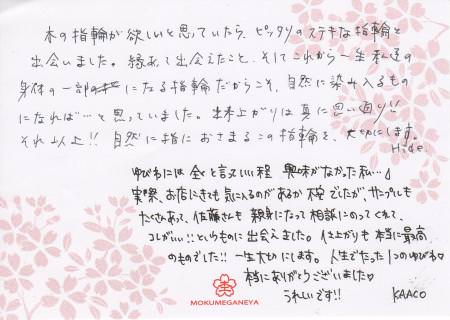 木の指輪が欲しいと思っていたら、ピッタリのステキな指輪と
出会いました。縁あって出会えたこと、そしてこれから一生私達の
身体の一部になる指輪だからこそ、自然に染み入るもの
になれば…と思っていました。出来上がりは真に思い通り!!
それ以上!!自然に指におさまるこの指輪を、大切にします。
Hide
ゆびわには全くと言っていい程興味がなかった私…♪
実際、お店にきても気に入るのがあるか不安でしたが、サンプルも
たくさんあって、佐藤さんも親身になって相談にのってくれて、
コレがいい!!というものに出会えました。仕上がりも本当に最高
のものでした!!一生大切にします。人生でたった1つのゆびわ♡
本当にありがとうございました♡
うれしいです!!
KAACO
MOKUMEGANEYA